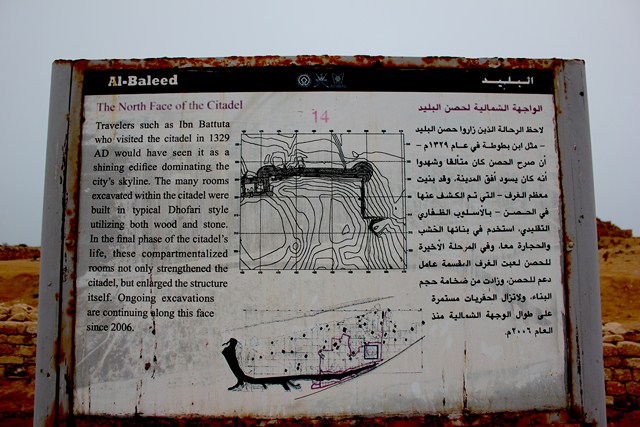 Al-Baleed
البليد
The North Face of the Citadel
Travelers such as Ibn Battuta
who visited the citadel in 1329
AD would have seen it as a
shining edifice dominating the
city's skyline. The many rooms
excavated within the citadel were
built in typical Dhofari style
utilizing both wood and stone.
In the final phase of the citadel's
life, these compartmentalized
rooms not only strengthened the
citadel, but enlarged the structure
itself. Ongoing excavations
are continuing along this face
since 2006.
14
الواجهة الشمالية لحصن البليد
لاحظ الرحالة الذين زاروا حصن البليد
– مثل ابن بطوطة في عام ١٣٢٩م –
أن صرح الحصن كان متألقا وشهدوا
أنه كان يسود أفق المدينة، وقد بنيت
معظم الغرف – التي تم الكشف عنها
في الحصن – بالأسلوب الظفاري
التقليدي، استخدم في بنائها الخشب
والحجارة معا، وفي المرحلة الأخيرة
للحصن لعبت الغرف المقسمة عامل
دعم للحصن، وزادت من ضخامة حجم
البناء، ولاتزال الحفريات مستمرة
على طوال الوجهة الشمالية منذ
العام ٢٠٠٦م.